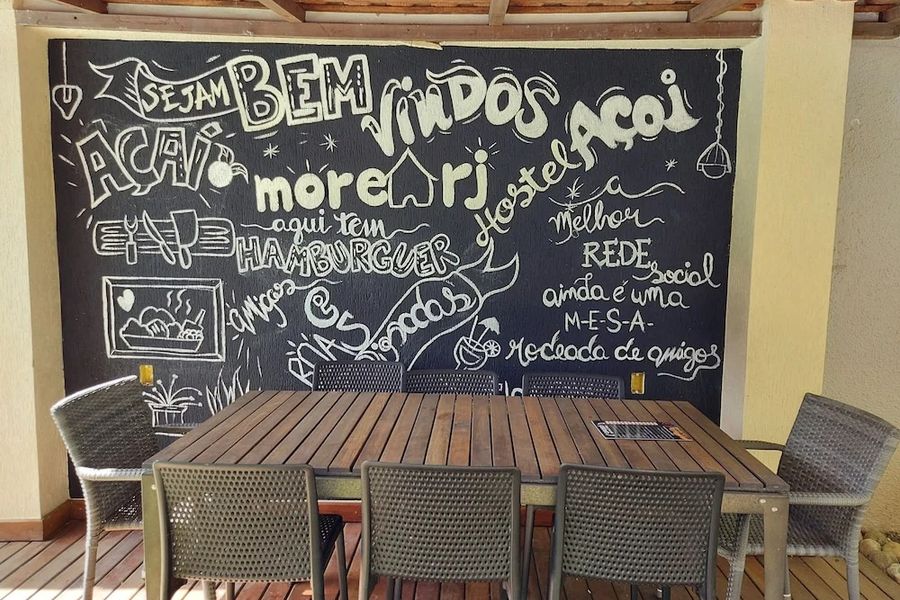 SEJAM BEM VINDOS
AÇAÍ
AÇAÍ
more rj
Hostel
aqui tem
HAMBURGUER
amigos
a
melhor
REDE
social
ainda é uma
M-E-S-A-
rodeada de amigos